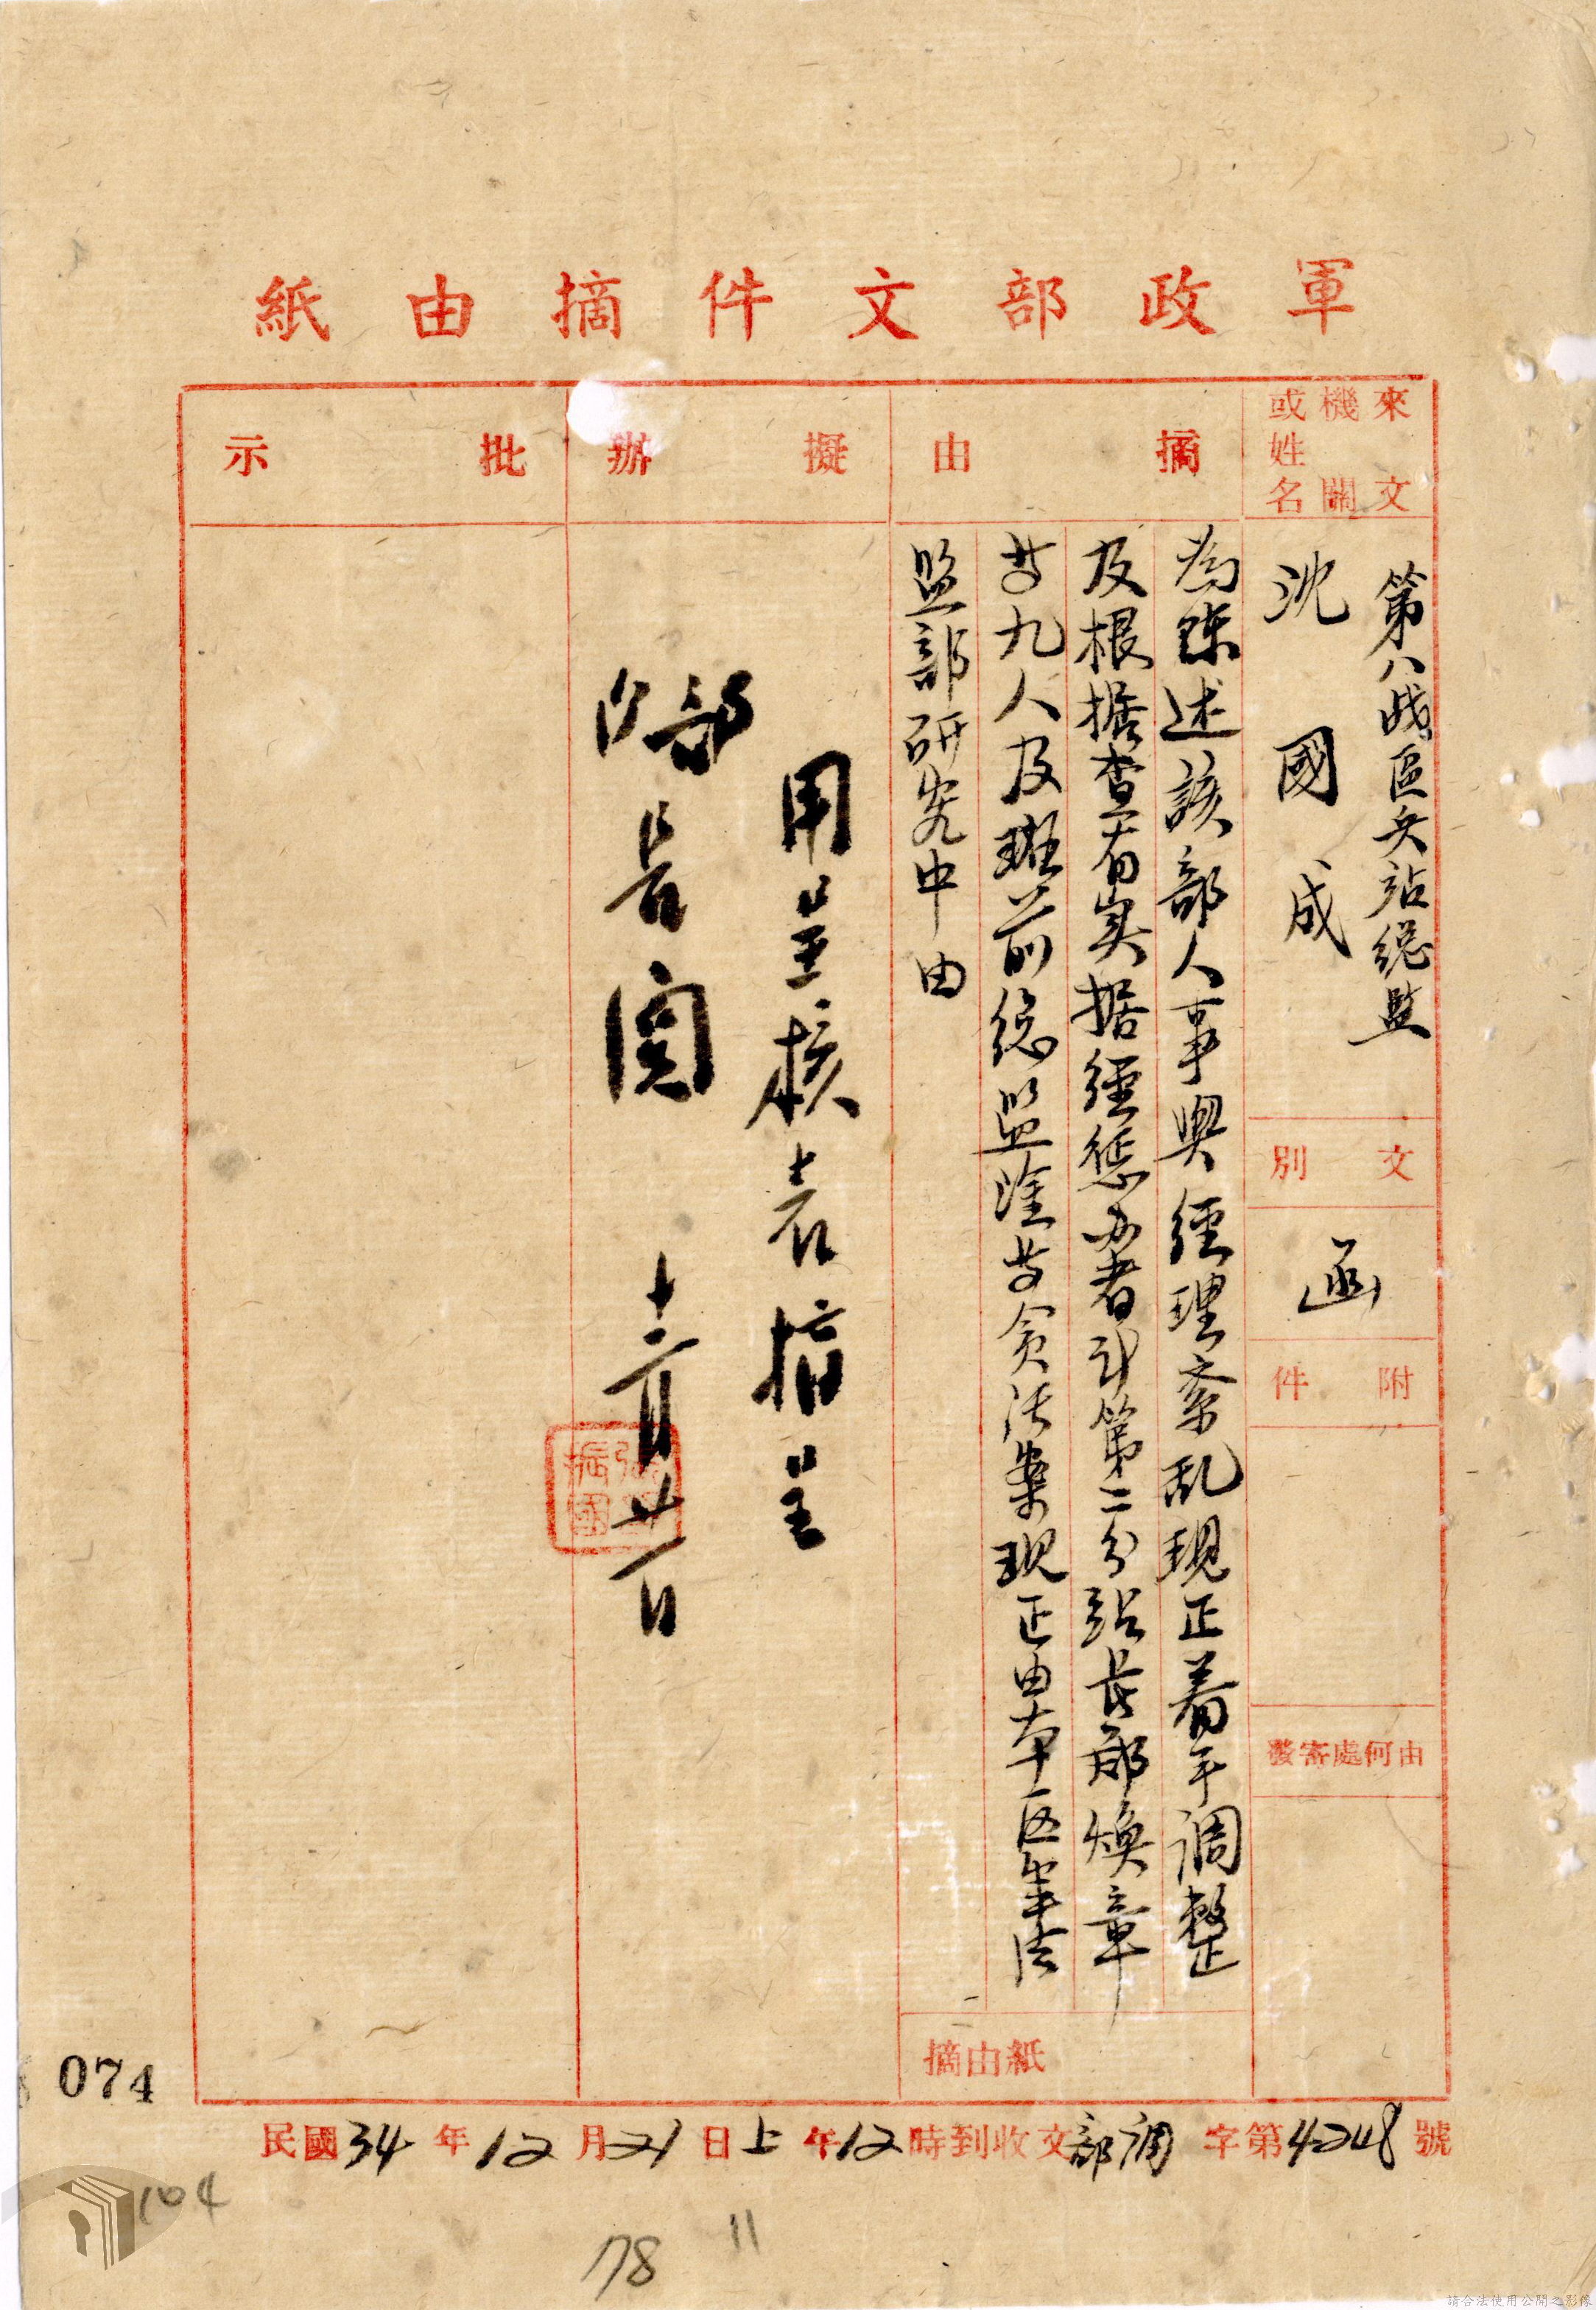 軍政部文件摘由紙
來文機關或姓名
第八战區兵站総監
沈國成
文別
函
附件
由何處審發
摘由
為陳述該部人事與經理紊乱現正着手調整
及根据查有实据經惩办者計第二分站長郝煥章
等九人及班前総监塗等贪污案現正由本区軍法
监部研究中由
摘由紙
擬辦
用呈核表摘呈
部
次長閱
十二月廿一日
批示
民國34年12月21日上午12時到收文部調字第4248號
074
104
78
11
請合法使用公開之影像